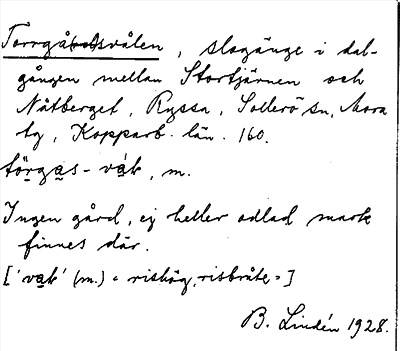 Torrgå(rd)svålen, slogänge i dal-
gången mellan Stortjärnen och
Nåtberget, Ryssa, Sollerö sn, Mora
tg, Kopparb. län. 160.
törgas-våk, m.
Ingen gård, ej heller odlad mark
finnes där.
['våk' (m.) = rishög, risbråte=]
B. Lindén 1928.